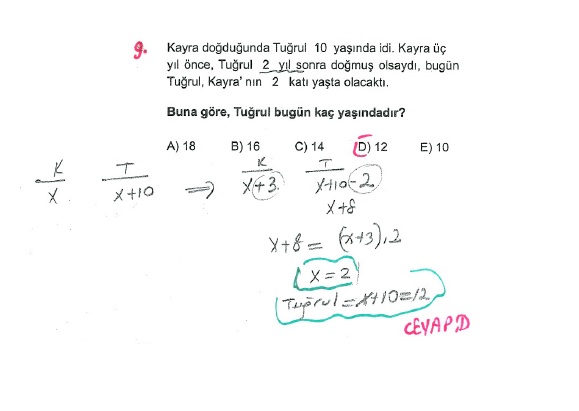 9. Kayra doğduğunda Tuğrul 10 yaşında idi. Kayra üç
yıl önce, Tuğrul 2 yıl sonra doğmuş olsaydı, bugün
Tuğrul, Kayra' nın 2 katı yaşta olacaktı.
Buna göre, Tuğrul bugün kaç yaşındadır?
A) 18 B) 16 C) 14 D) 12 E) 10
K T K T
x x+10 ⇒ x+3 x+10-2
x+8
x+8 = (x+3).2
x = 2
Tuğrul = x+10=12
CEVAP D